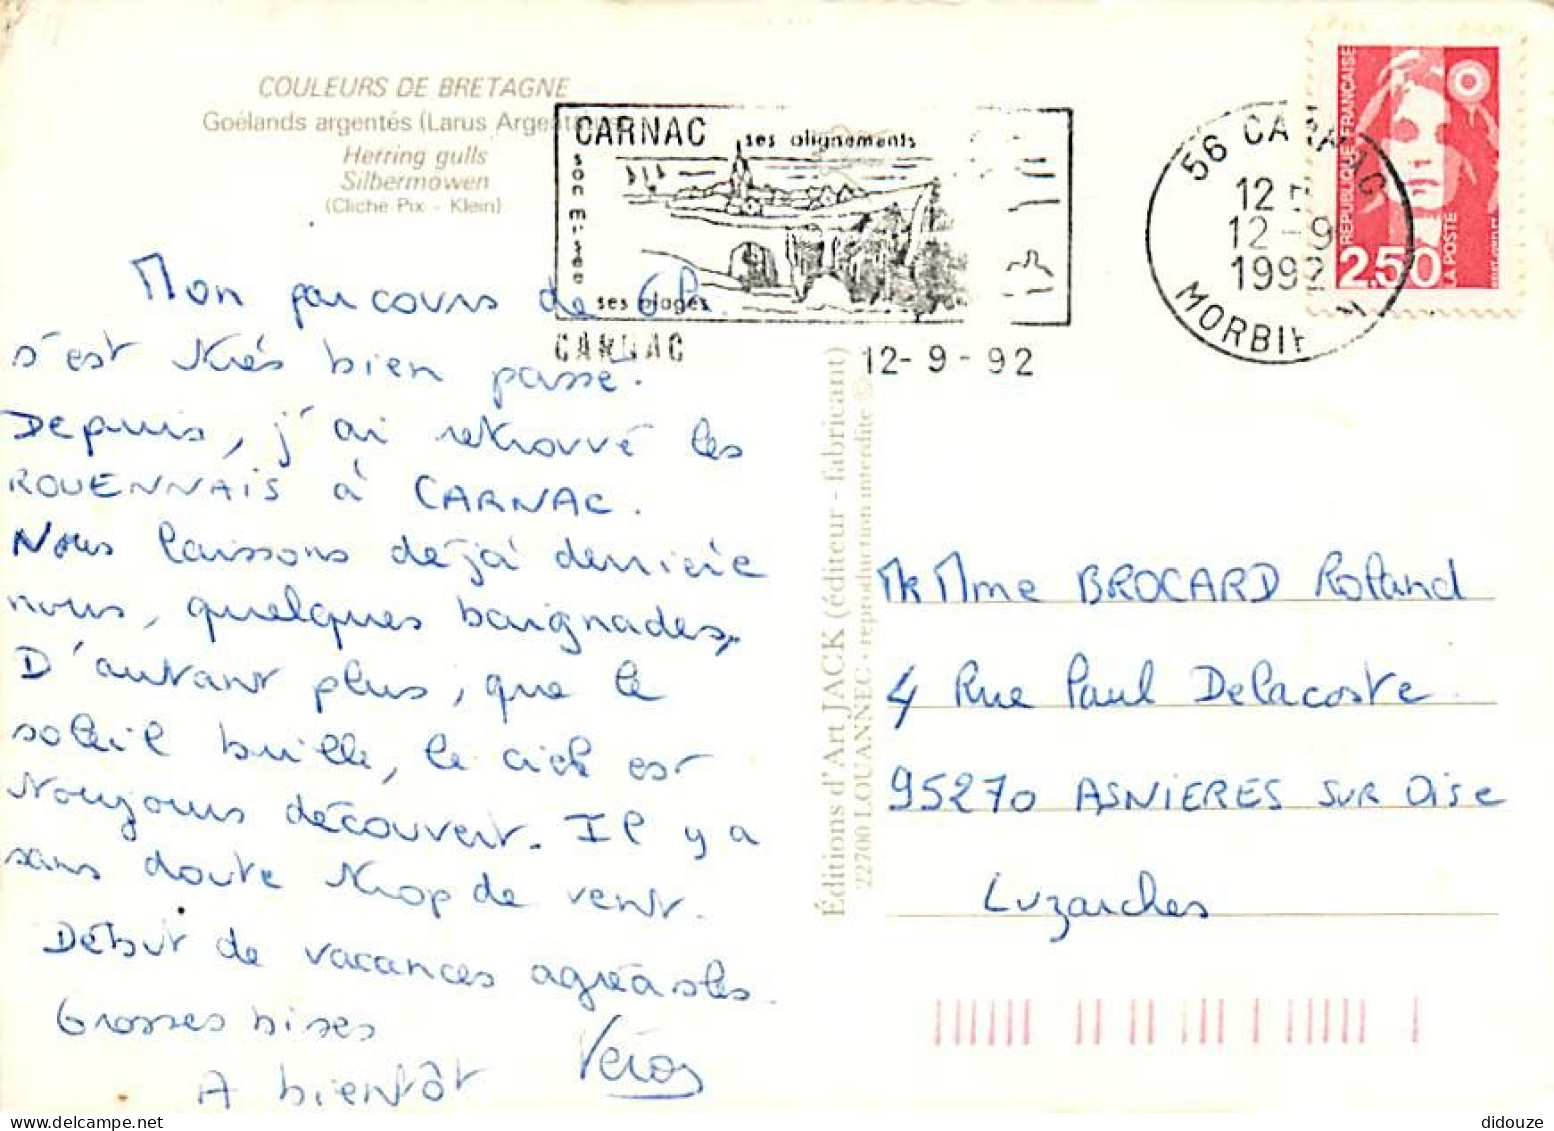 COULEURS DE BRETAGNE
Goélands argentés (Larus Argentatus)
Herring gulls
Silbermöwen
(Cliché Pix - Klein)
CARNAC
ses alignements
son musée
ses plages
CARNAC
12-9-92
56 CARNAC
12 H
12-9
1992
MORBIHAN
RÉPUBLIQUE FRANÇAISE
2.50
LA POSTE
Mon parcours de GR.
s'est très bien passé.
Depuis, j'ai retrouvé les
ROUENNAIS à CARNAC.
Nous laissons déjà derrière
nous, quelques baignades,
D'autant plus, que le
soleil brille, le ciel est
Toujours découvert. Il y a
sans doute trop de vent.
Début de vacances agréables.
Grosses bises
A bientôt
Véro
Éditions d'Art JACK (éditeur - fabricant)
22700 LOUANNEC - reproduction interdite ©
Mr Mme BROCARD Roland
4 Rue Paul Delacoste
95270 ASNIERES SUR Oise
Luzarches
didouze